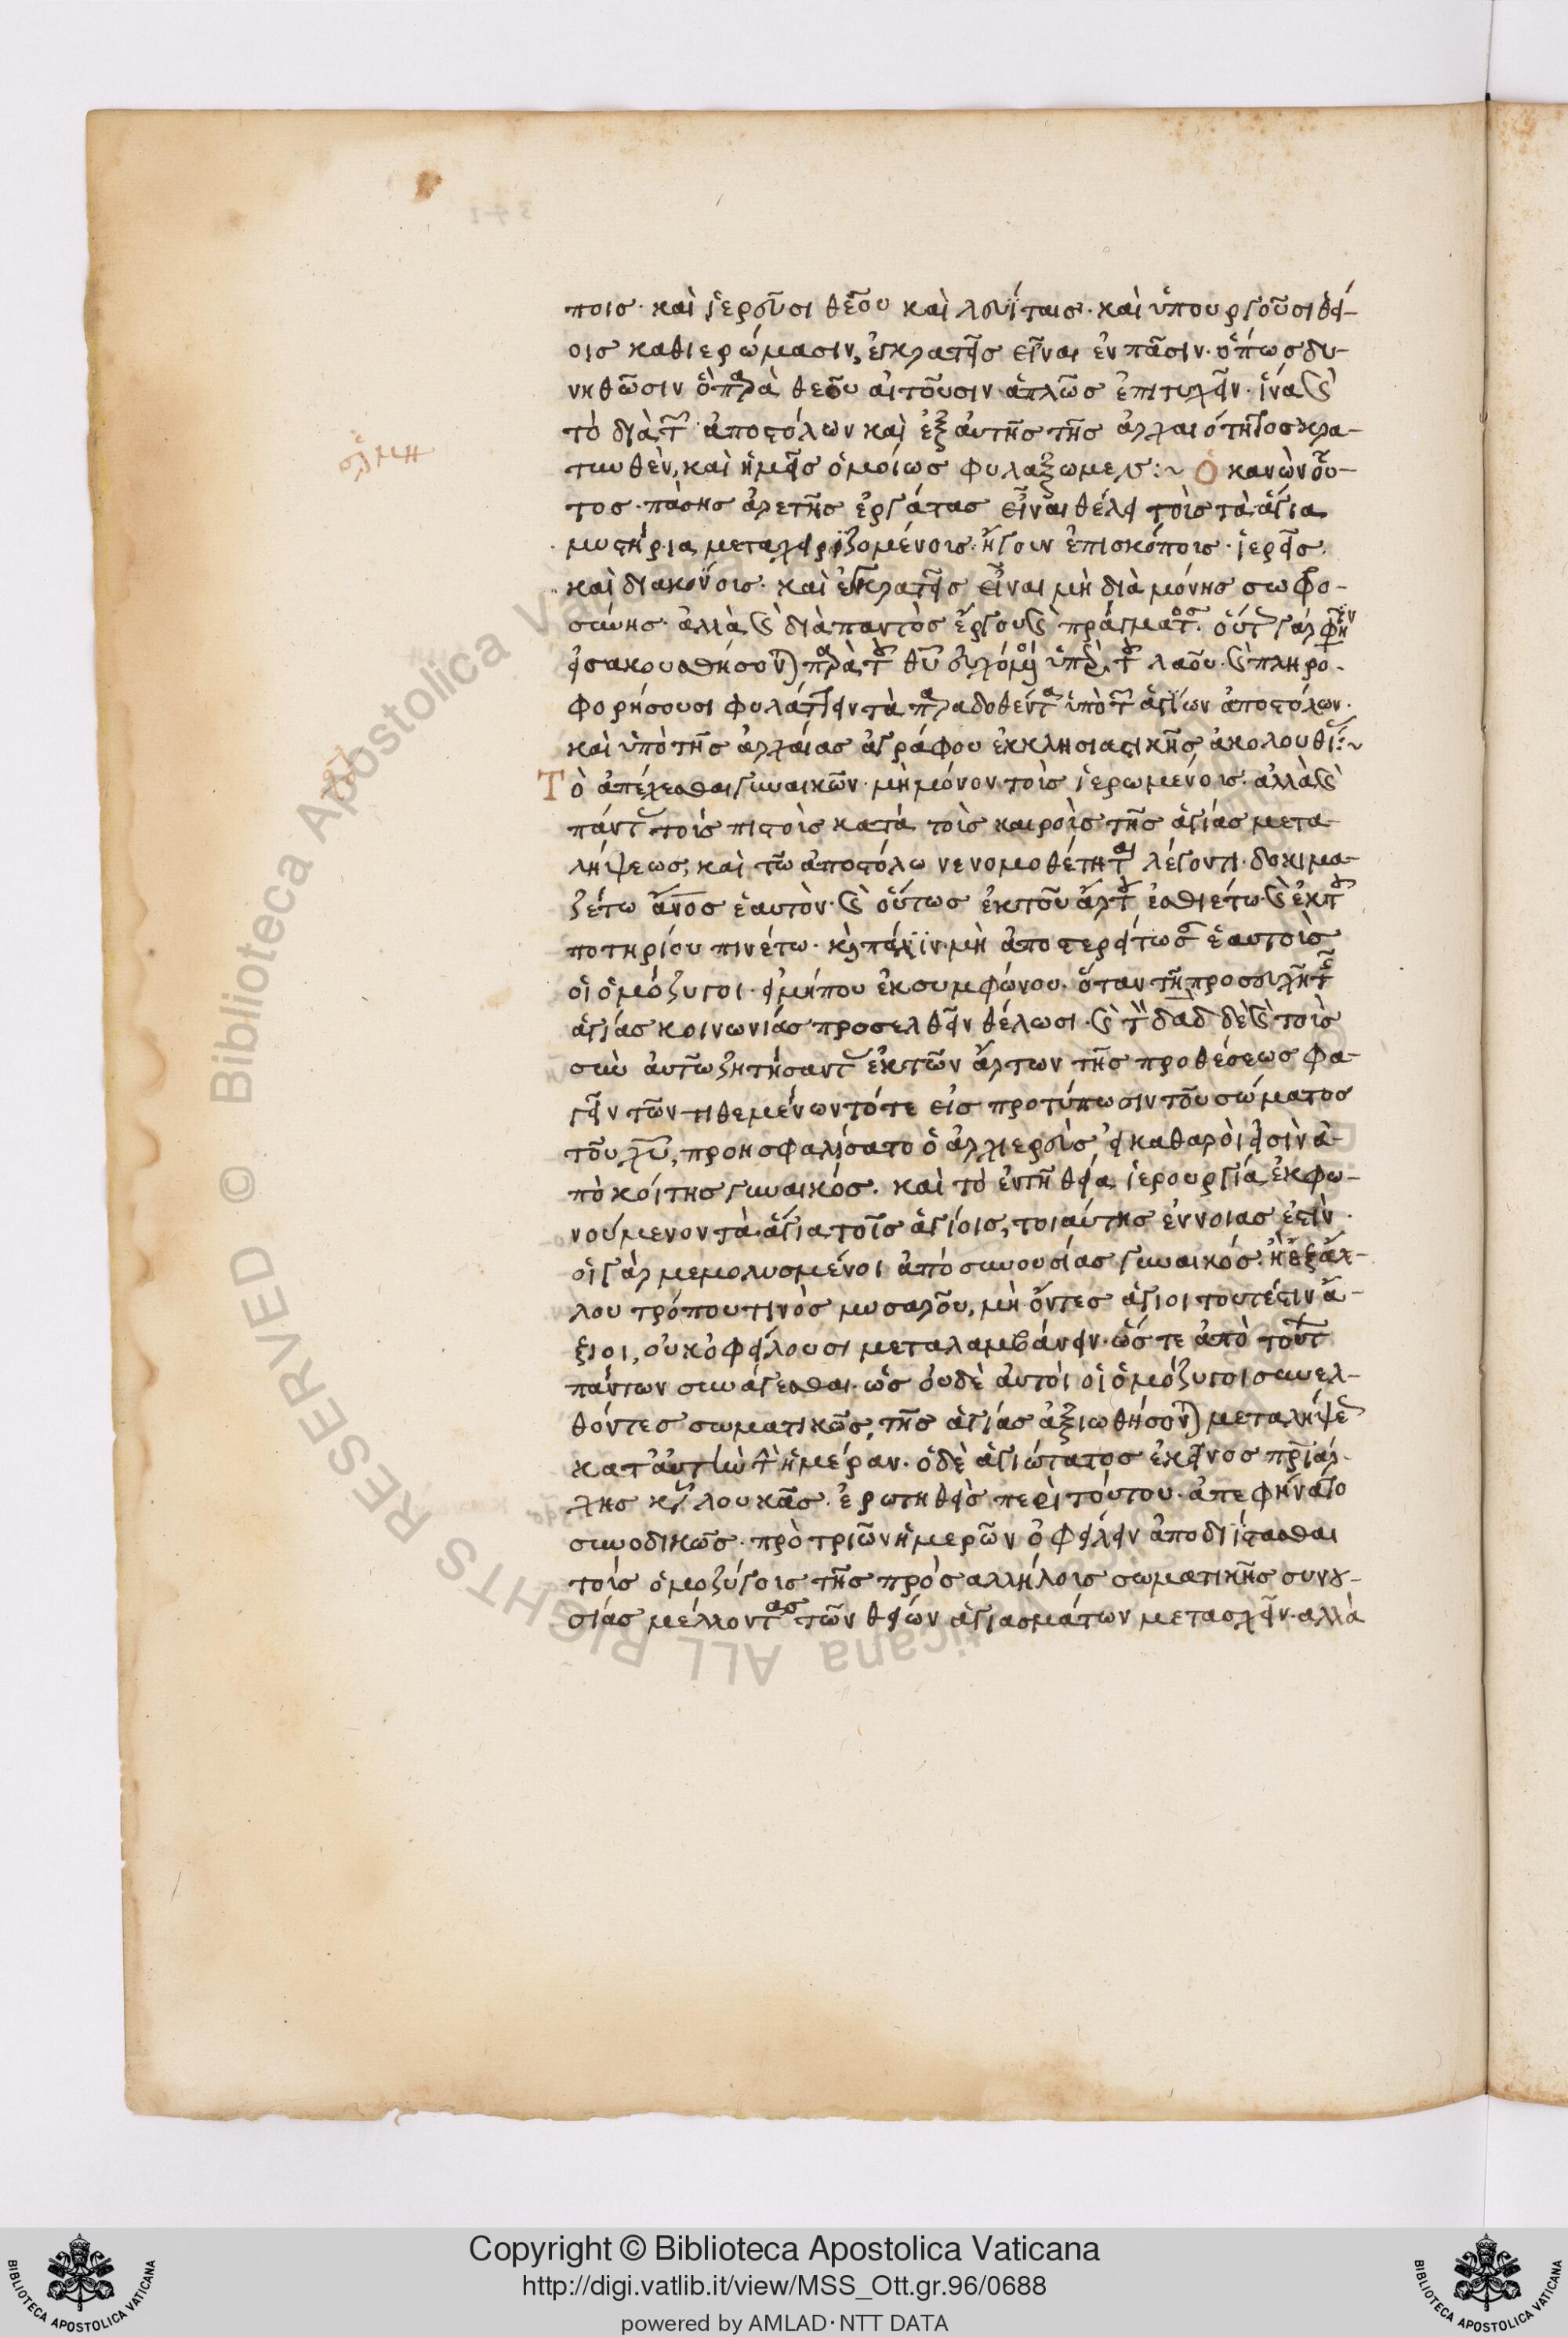 ποις· καὶ ἱερεῦσι θεοῦ καὶ λευΐταις· καὶ ὑπουργοῦσι θεί-
οις καθιερώμασιν, ἐγκρατεῖς εἶναι ἐν πᾶσιν· ὅπως δυ-
νηθῶσιν ὃ παρὰ θεοῦ αἰτοῦσιν ἁπλῶς ἐπιτυχεῖν· ἵνα καὶ
τὸ διὰ τῶν ἀποστόλων καὶ ἐξ αὐτῆς τῆς ἀρχαιότητος κρα-
τυνθὲν, καὶ ἡμεῖς ὁμοίως φυλάξωμεν:~ Ὁ κανὼν οὗ-
τος· πάσης ἀρετῆς ἐργάτας εἶναι θέλει τοὺς τὰ ἅγια
μυστήρια μεταχειριζομένους· ἤγουν ἐπισκόπους· ἱερεῖς·
καὶ διακόνους· καὶ ἐγκρατεῖς εἶναι μὴ διὰ μόνης σωφρο-
σύνης· ἀλλὰ καὶ διὰ παντὸς ἔργου καὶ πράγματος· οὕτω γάρ φησιν
εἰσακουσθήσονται παρὰ τοῦ θυ εὐχόμενοι ὑπὲρ τοῦ λαοῦ· καὶ πληρο-
φορήσουσι φυλάττειν τὰ παραδοθέντα ὑπὸ τῶν ἁγίων ἀποστόλων·
καὶ ὑπὸ τῆς ἀρχαίας ἀγράφου ἐκκλησιαστικῆς ἀκολουθίας:~
Τὸ ἀπέχεσθαι γυναικῶν· μὴ μόνον τοὺς ἱερωμένους· ἀλλὰ καὶ
πάντας τοὺς πιστοὺς κατὰ τοὺς καιροὺς τῆς ἁγίας μετα-
λήψεως, καὶ τῶ ἀποστόλω νενομοθέτηται λέγοντι· δοκιμα-
ζέτω ἄνος ἑαυτὸν· καὶ οὕτως ἐκ τοῦ ἄρτου ἐσθιέτω· καὶ ἐκ τοῦ
ποτηρίου πινέτω· καὶ πάλιν· μὴ ἀποστερείτωσαν ἑαυτοὺς
οἱ ὁμόζυγοι· εἰ μήπου ἐκ συμφώνου· ὅταν τῆ προσευχῆ τῆς
ἁγίας κοινωνίας προσελθεῖν θέλωσι· καὶ τὸν δαδ δὲ καὶ τοὺς
σὺν αὐτῶ ζητήσαντας ἐκ τῶν ἄρτων τῆς προθέσεως φα-
γεῖν τῶν τιθεμένων τότε εἰς προτύπωσιν τοῦ σώματος
τοῦ χυ, προησφαλίσατο ὁ ἀρχιερεὺς εἰ καθαροὶ εἰσὶν ἀ-
πὸ κοίτης γυναικός· καὶ τὸ ἐν τῆ θεία ἱερουργία ἐκφω-
νούμενον τὰ ἅγια τοῖς ἁγίοις, τοιαύτης ἐννοιας ἐστὶν·
οἱ γὰρ μεμολυσμένοι ἀπὸ συνουσίας γυναικός· ἢ ἐξ ἄλ-
λου τρόπου τινὸς μυσαροῦ, μὴ ὄντες ἅγιοι τουτέστιν ἄ-
ξιοι, οὐκ ὀφείλουσι μεταλαμβάνειν· ὥστε ἀπὸ τούτων
πάντων συνάγεσθαι· ὡς οὐδὲ αὐτοὶ οἱ ὁμόζυγοι συνελ-
θόντες σωματικῶς, τῆς ἁγίας ἀξιωθήσονται μεταλήψεως
κατ' αὐτὴν τὴν ἡμέραν· ὁ δὲ ἁγιώτατος ἐκεῖνος πριάρ-
χης κῦρ λουκᾶς· ἐρωτηθεὶς περὶ τούτου· ἀπεφήνατο
συνοδικῶς· πρὸ τριῶν ἡμερῶν ὀφείλειν ἀποδιΐστασθαι
τοὺς ὁμοζύγους τῆς πρὸς ἀλλήλους σωματικῆς συνου-
σίας μέλλοντας τῶν θείων ἁγιασμάτων μετασχεῖν· ἀλλὰ
Copyright © Biblioteca Apostolica Vaticana
http://digi.vatlib.it/view/MSS_Ott.gr.96/0688
powered by AMLAD·NTT DATA